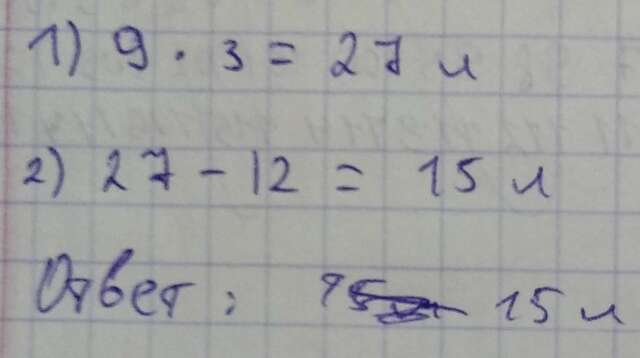 1) 9 · 3 = 27 л
2) 27 - 12 = 15 л
Ответ: 15 л